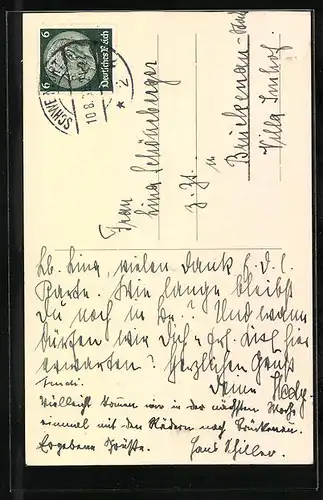 6 Deutsches Reich 6
10.8.
Frau
Lina Schönberger
z. Zt. in
Brückenau-
Villa Imhof.
Lb. Lina, vielen Dank f. d. l.
Karte. Wie lange bleibst
Du noch in Br.? Und wann
dürfen wir Dich hier
erwarten? Herzlichen Gruß
Deine Hedy.
Vielleicht kommen wir in der nächsten Woche
einmal mit den Rädern nach Brückenau.
Ergebene Grüße. Hans Schiller.